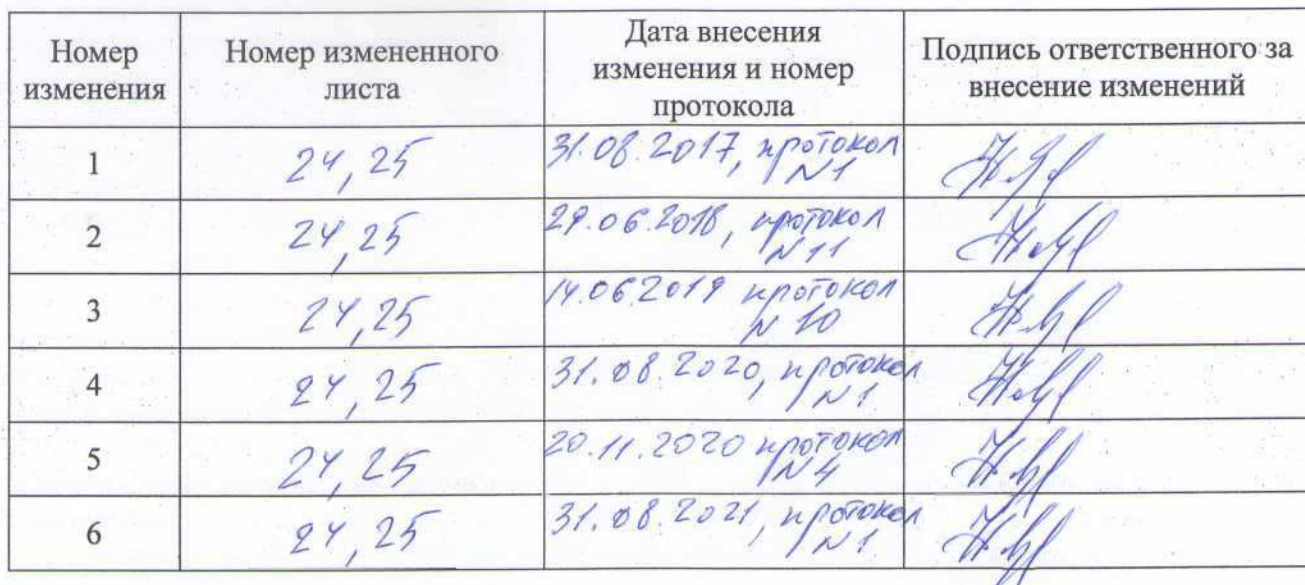 Номер изменения
Номер измененного листа
Дата внесения изменения и номер протокола
Подпись ответственного за внесение изменений
1
24, 25
31.08.2017, протокол
N1
2
24, 25
29.06.2018, протокол
N 11
3
24, 25
14.06.2019 протокол
N 10
4
24, 25
31.08.2020, протокол
N1
5
24, 25
20.11.2020 протокол
N4
6
24, 25
31.08.2021, протокол
N1